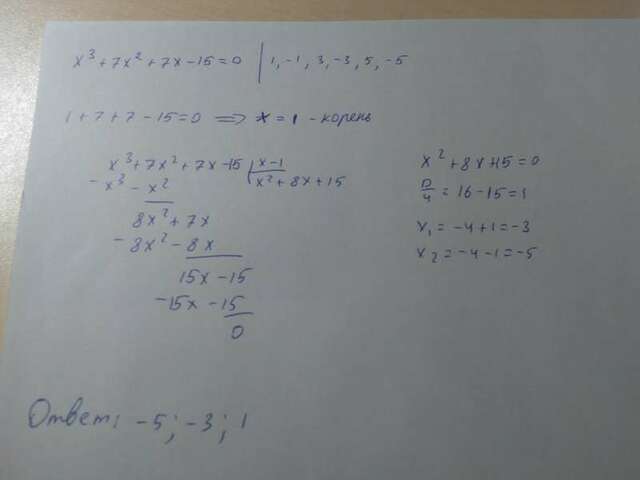 x³ + 7x² + 7x - 15 = 0 | 1, -1, 3, -3, 5, -5
1 + 7 + 7 - 15 = 0 ⇒ x = 1 - корень
x³ + 7x² + 7x - 15 | x - 1
- x³ - x² | x² + 8x + 15
8x² + 7x
- 8x² - 8x
15x - 15
- 15x - 15
0
x² + 8x + 15 = 0
D/4 = 16 - 15 = 1
x₁ = -4 + 1 = -3
x₂ = -4 - 1 = -5
Ответ: -5; -3; 1